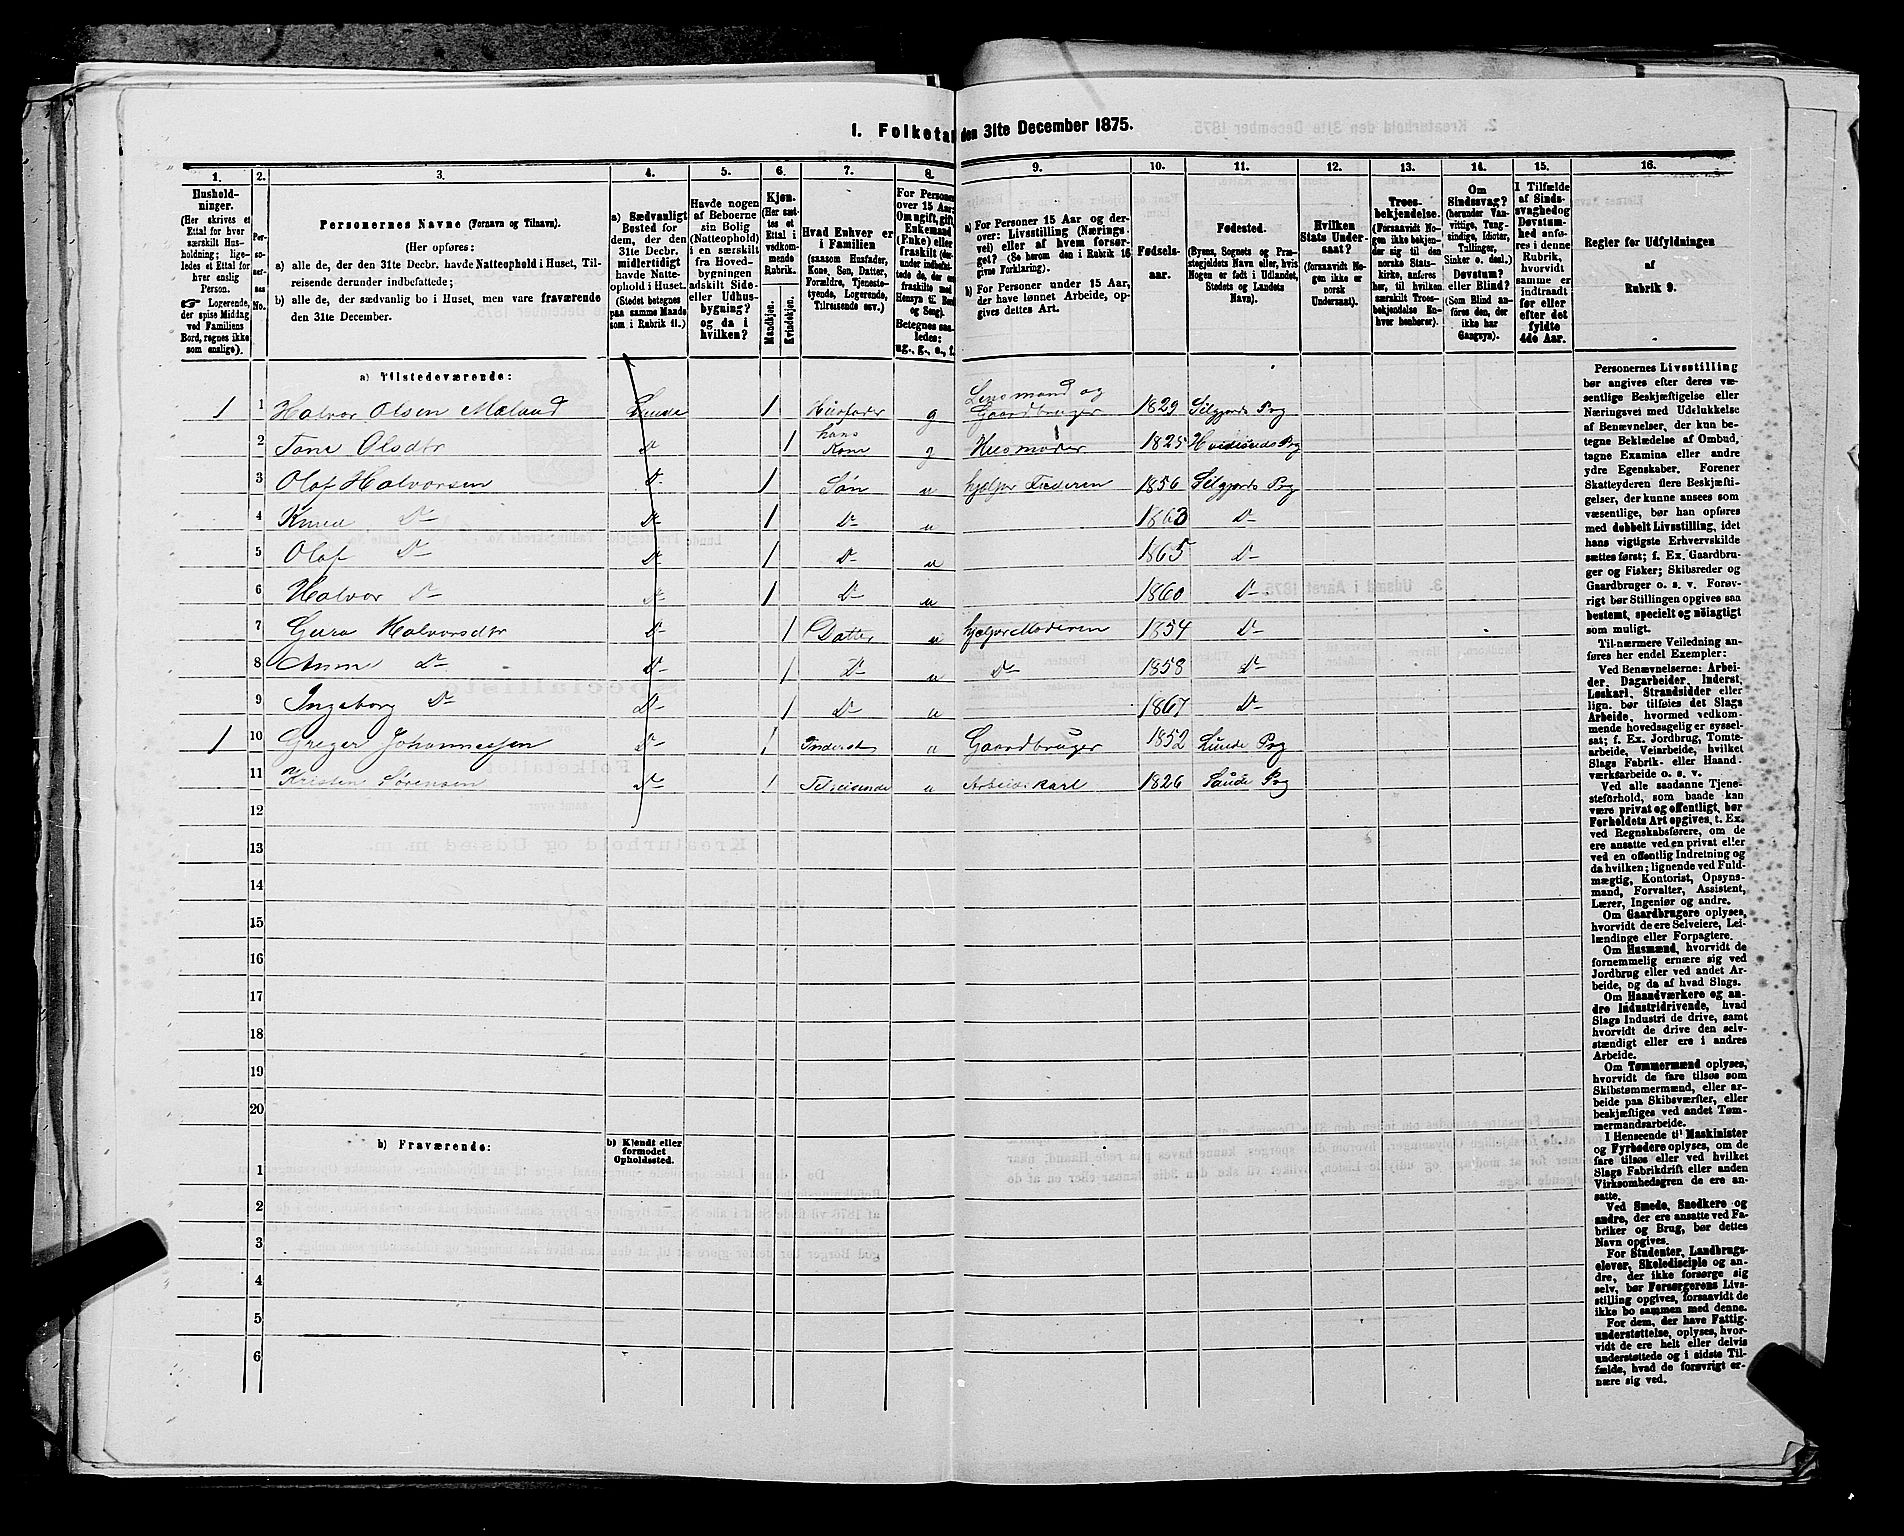 1. Folketa den 31te December 1875.
1. 2. 3. 4. 5. 6. 7. 8. 9. 10. 11. 12. 13. 14. 15. 16.
Hushold-
ninger.
(Her skrives et
Ettal for hver
særskilt Hus-
holdning; lige-
ledes et Ettal for
hver enslig
Person.
☞ Logerende,
der spise Middag
ved Familiens
Bord, regnes ikke
som enslige).
Per-
so-
ner-
nes
No.
Personernes Navne (Fornavn og Tilnavn).
(Her opføres:
a) alle de, der den 31te Decbr. havde Natteophold i Huset, Til-
reisende derunder indbefattede;
b) alle de, der sædvanlig bo i Huset, men vare fraværende
den 31te December.
a) Sædvanligt
Bosted for
dem, der den
31te Decbr.
midlertidigt
havde Natte-
ophold i Huset.
(Stedet betegnes
paa samme Maade
som i Rubrik 11.)
Havde nogen
af Beboerne
sin Bolig
(Natteophold)
i en særskilt
fra Hoved-
bygningen
adskilt Side-
eller Udhus-
bygning?
og da i
hvilken?
Kjøn.
(Her sæt-
tes et
Ettal i
vedkom-
mende
Rubrik.
Mandkjøn.
Kvindekjøn.
Hvad Enhver er
i Familien
(saasom Husfader,
Kone, Søn, Datter,
Forældre, Tjeneste-
tyende, Logerende,
Tilreisende osv.)
For Persone
over 15 Aar
Om ugift, gift
Enkemand
(Enke) eller
fraskilt (der-
under indbefat-
tede de, der er
fraskilte med
Hensyn til Bord
og Seng).
Betegnes saa-
ledes:
ug., g., e., f.
a) For Personer 15 Aar og der-
over: Livsstilling (Nærings-
vei) eller af hvem forsør-
get? (Se herom den i Rubrik 16
givne Forklaring).
b) For Personer under 15 Aar,
der have lønnet Arbeide, op-
gives dettes Art.
Fødsels-
aar.
Fødested.
(Byens, Sognets og Præ-
stegjeldets Navn eller, hvis
Nogen er født i Udlandet,
Stedets og Landets
Navn).
Hvilken
Stats Under-
saat?
(forsaavidt No-
gen ikke er
norsk
Undersaat).
Troes-
bekjendelse.
(Forsaavidt No-
gen ikke bekjen-
der sig til den
norske Stats-
kirke, anføres
her, til hvilken
særskilt Troes-
bekjendelse En-
hver henhører).
Om
Sindssvag?
(herunder Van-
vittige, Tung-
sindige, Idioter,
Tullinger,
Sinker o. desl.)
Døvstum?
eller Blind?
(Som Blind an-
føres den, der
ikke har
Gangsyn).
I Tilfælde
af Sinds-
svaghed og
Døvstum-
hed anfø-
res i denne
Rubrik,
hvorvidt
samme er
indtraadt
før eller
efter det
fyldte
4de Aar.
Regler for Udfyldningen
af
Rubrik 9.
a) Tilstedeværende:
1 1 Halvor Olsen Mæland Lunde 1 Husfader g Lensmand og Gaardbruger 1829 Silgjords Prg
2 Tone Olsdtr Do 1 hans Kone g Husmoder 1825 Hvidesøds Prg
3 Olaf Halvorsen Do 1 Søn u hjelper Faderen 1856 Silgjords Prg
4 Knud Do Do 1 Do u 1863 Do
5 Olaf Do Do 1 Do u 1865 Do
6 Halvor Do Do 1 Do u 1860 Do
7 Guro Halvorsdtr Do 1 Datter u hjelper Moderen 1854 Do
8 Anne Do Do 1 Do u Do 1858 Do
9 Ingeborg Do Do 1 Do u 1867 Do
1 10 Greger Johannessen Do 1 Inderst u Gaardbruger 1852 Lunde Prg
11 Kristen Sørensen Do 1 Tilreisende u Arbeidskarl 1826 Saude Prg
12
13
14
15
16
17
18
19
20
b) Fraværende:
b) Kjendt eller
formodet
Opholdssted.
1
2
3
4
5
6
Personernes Livsstilling
bør angives efter deres væ-
sentlige Beskjæftigelse eller
Næringsvei med Udelukkelse
af Benævnelser, der kun be-
tegne Beklædelse af Ombud,
tagne Examina eller andre
ydre Egenskaber. Forener
Skatteyderen flere Beskjæfti-
gelser, der kunne ansees som
væsentlige, bør han opføres
med dobbelt Livsstilling, idet
hans vigtigste Erhvervskilde
sættes først; f. Ex. Gaardbru-
ger og Fisker; Skibsreder og
Gaardbruger o. s. v. Forøv-
rigt bør Stillingen opgives saa
bestemt, specielt og nøiagtigt
som muligt.
Til nærmere Veiledning an-
føres her endel Exempler:
Ved Benævnelserne: Arbei-
der, Dagarbeider, Inderst,
Løskarl, Strandsidder eller
lign. bør tilføies det Slags
Arbeide, hvormed vedkom-
mende hovedsagelig er syssel-
sat; f. Ex. Jordbrug, Tomte-
arbeide, Veiarbeide, hvilket
Slags Fabrik- eller Haand-
værksarbeide o. s. v.
Ved alle saadanne Tjene-
steforhold, som baade kan
være privat og offentligt, bør
Forholdets Art opgives, t. Ex.
ved Regnskabsførere, om de
ere ansatte ved en privat eller
ved en offentlig Indretning og
da hvilken; lignende ved Fuld-
mægtig, Kontorist, Opsyns-
mand, Forvalter, Assistent,
Lærer, Ingeniør og andre.
Om Gaardbrugere oplyses,
hvorvidt de ere Selveiere, Lei-
lændinge eller Forpagtere.
Om Husmænd, hvorvidt de
fornemmelig ernære sig ved
Jordbrug eller ved andet Ar-
beide, og da af hvad Slags.
Om Haandværkere og an-
dre Industridrivende, hvad
Slags Industri de drive, samt
hvorvidt de drive den selv-
stændigt eller ere i andres
Arbeide.
Om Tømmermænd oplyses,
hvorvidt de fare tilsøs som
Skibstømmermænd, eller ar-
beide paa Skibsværfter, eller
beskjæftiges ved andet Tøm-
mermandsarbeide.
I Henseende til Maskinister
og Fyrbødere oplyses, om de
fare tilsøs eller ved hvilket
Slags Fabrikdrift eller anden
Virksomhedsgren de ere an-
satte.
Ved Smede, Snedkere og
andre, der ere ansatte ved Fa-
briker og Brug, bør dettes
Navn opgives.
For Studenter, Landbrugs-
elever, Skoledisciple og an-
dre, der ikke forsørge sig
selv, bør Forsørgerens Livs-
stilling opgives, forsaavidt de
ikke bo sammen med denne.
For dem, der have Fattig-
understøttelse, oplyses, hvor-
vidt de ere helt eller delvis
understøttede og i sidste Til-
fælde, hvad de forøvrigt er-
nære sig ved.